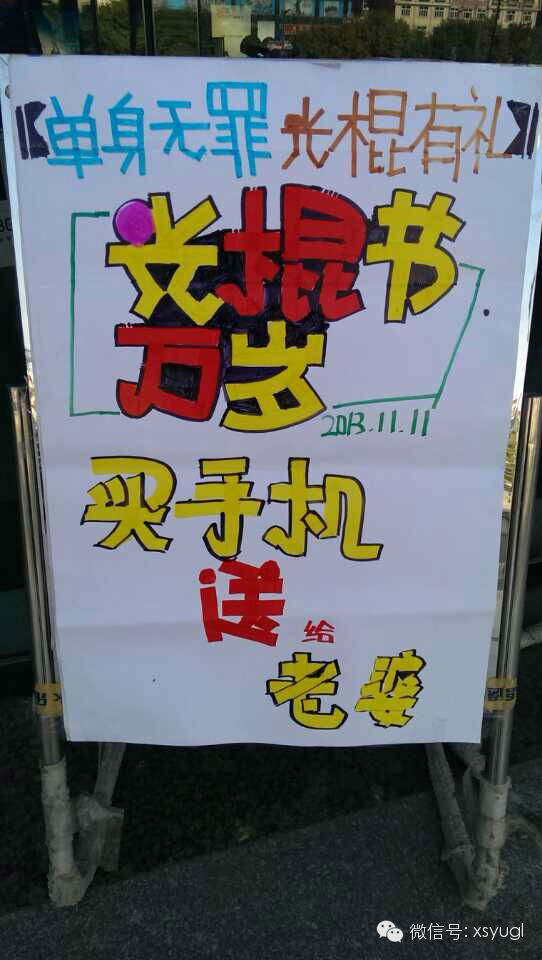 单身无罪 光棍有礼
光棍节
万岁
2013.11.11
买手机
送给
老婆
微信号: xsyugl